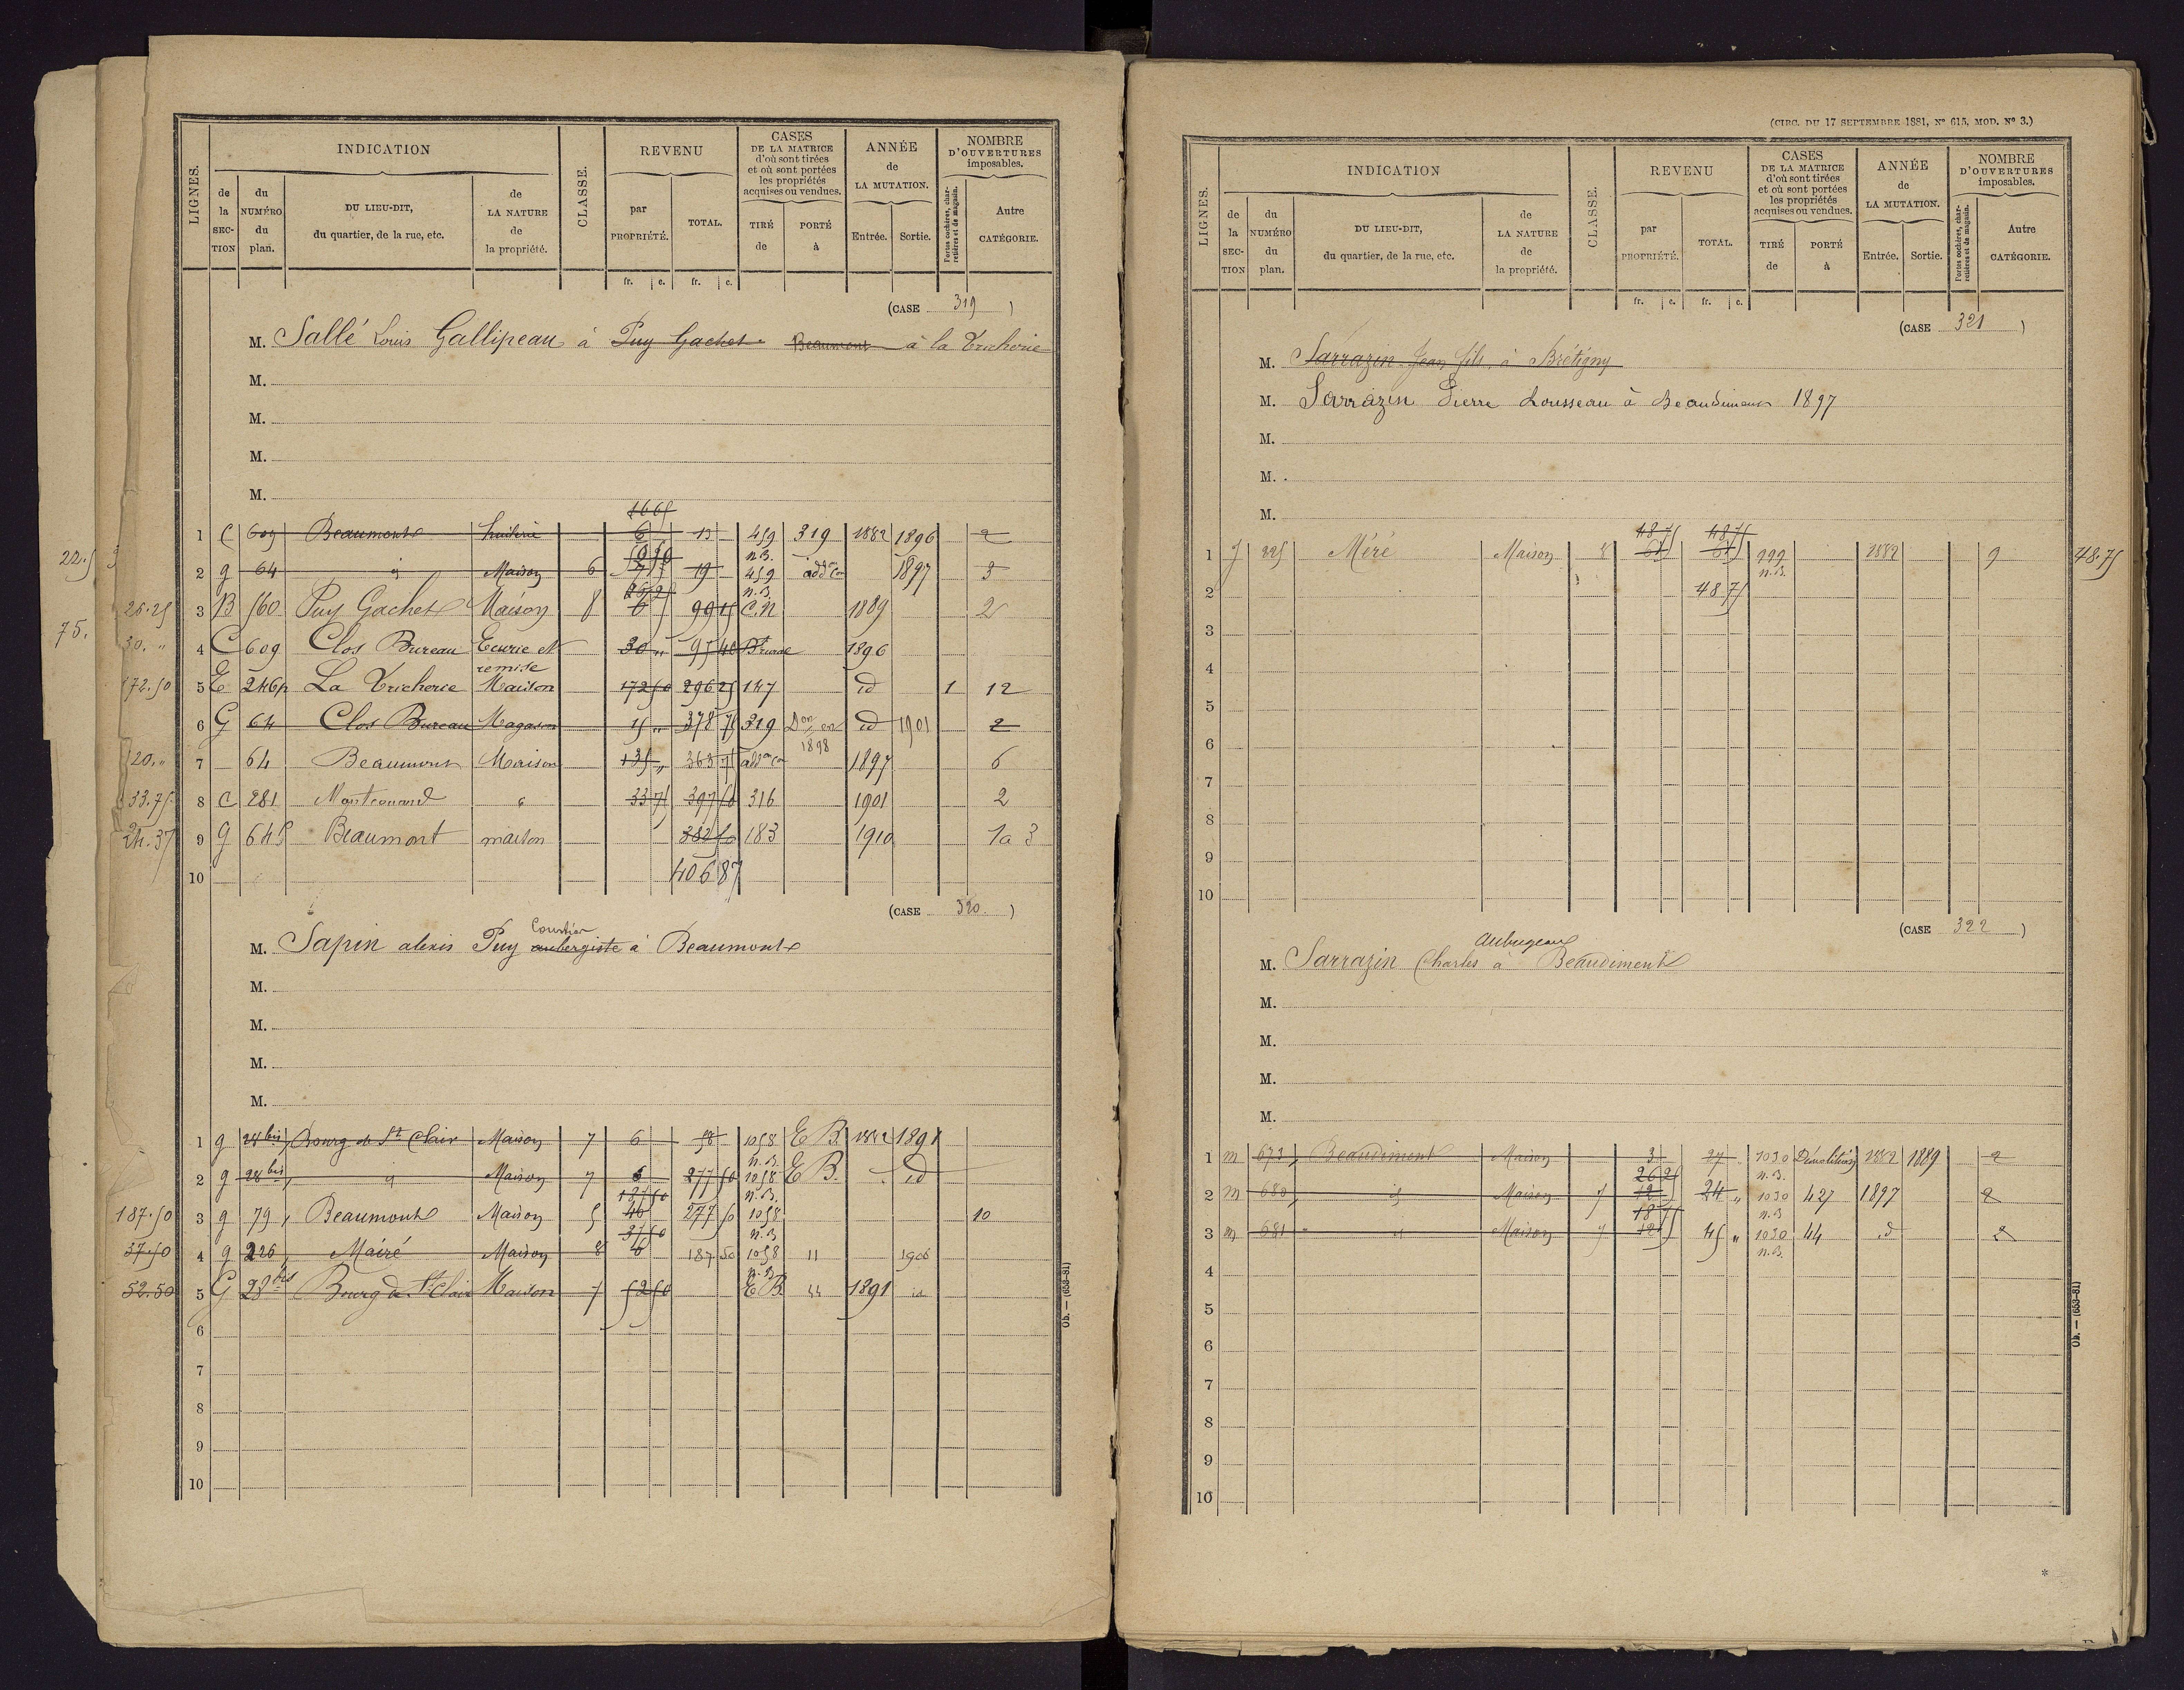 LIGNES.
INDICATION
de la SECTION
du NUMÉRO du plan.
DU LIEU-DIT, du quartier, de la rue, etc.
de LA NATURE de la propriété.
CLASSE.
REVENU
par PROPRIÉTÉ.
TOTAL.
fr. c. fr. c.
CASES DE LA MATRICE d'où sont tirées et où sont portées les propriétés acquises ou vendues.
TIRÉ de
PORTÉ à
ANNÉE de LA MUTATION.
Entrée. Sortie.
NOMBRE D'OUVERTURES imposables.
Portes cochères, charretières et de magasin.
Autre CATÉGORIE.
(CASE 319)
M. Sallé Louis Gallipeau à Puy Gachet Beaumont à la Tricherie
M.
M.
M.
M.
1665
1 C 609 Beaumont huilerie 6 13 459 319 1882 1896 2
n.B.
2 g 64 id Maison 6 19 459 add on 1897 3
2625 n.B.
26.25 3 B 560 Puy Gachet Maison 8 6 9915 C.N 1889 2
30. " 4 C 609 Clos Bureau Ecurie et remise 30 " 95 40 1896
172.50 5 E 246p La Tricherie Maison 172 50 296 25 147 id 1 12
6 G 64 Clos Bureau Magasin 15 " 378 75 319 Don en 1898 id 1901 2
120. " 7 64 Beaumont Maison 135 " 363 75 add on 1897 6
33.75 8 C 281 Maison 33 75 397 50 316 1901 2
24.37 9 G 64P Beaumont maison 382 50 183 1910 1a 3
10 406 87
22.5
75.
(CASE 320.)
Courtier
M. Sapin alexis Puy aubergiste à Beaumont
M.
M.
M.
M.
1 g 28 bis Bourg de St Clair Maison 7 6 58 1058 E B. 1882 1891
n.B.
2 g 28 bis id Maison 7 6 277 50 1058 E B. id
187 50 n.B.
187.50 3 g 79 Beaumont Maison 5 46 277 50 1058 10
37 50 n.B
37.50 4 g 226 Mairé Maison 8 6 187 50 1058 11 1906
n.B
52.50 5 G 28 bis Bourg de St Clair Maison 7 52 50 E B 1891 id
6
7
8
9
10
Ob. — (653-81)
(CIRC. DU 17 SEPTEMBRE 1881, N° 615, MOD. N° 3.)
LIGNES.
INDICATION
de la SECTION
du NUMÉRO du plan.
DU LIEU-DIT, du quartier, de la rue, etc.
de LA NATURE de la propriété.
CLASSE.
REVENU
par PROPRIÉTÉ.
TOTAL.
fr. c. fr. c.
CASES DE LA MATRICE d'où sont tirées et où sont portées les propriétés acquises ou vendues.
TIRÉ de
PORTÉ à
ANNÉE de LA MUTATION.
Entrée. Sortie.
NOMBRE D'OUVERTURES imposables.
Portes cochères, charretières et de magasin.
Autre CATÉGORIE.
(CASE 321)
M. Sarrazin Jean fils, à Brétigny
M. Sarrazin Pierre Lousseau à Beaudiment 1897
M.
M.
M.
48.75 48.75
1 J 225 Méré Maison 8 999 1882 9 48.75
n.B.
2 48.75
3
4
5
6
7
8
9
10
(CASE 322)
Aubugeau
M. Sarrazin Charles à Beaudiment
M.
M.
M.
M.
1 m 673 Beaudiment Maison 3 27 1030 Démolition 1882 1889 2
26 25 n.B.
2 m 680 id Maison 7 12 24 " 1030 427 1897 2
18 75 n.B
3 m 681 id Maison 7 12 45 " 1030 44 id 2
n.B.
4
5
6
7
8
9
10
Ob. — (653-81)